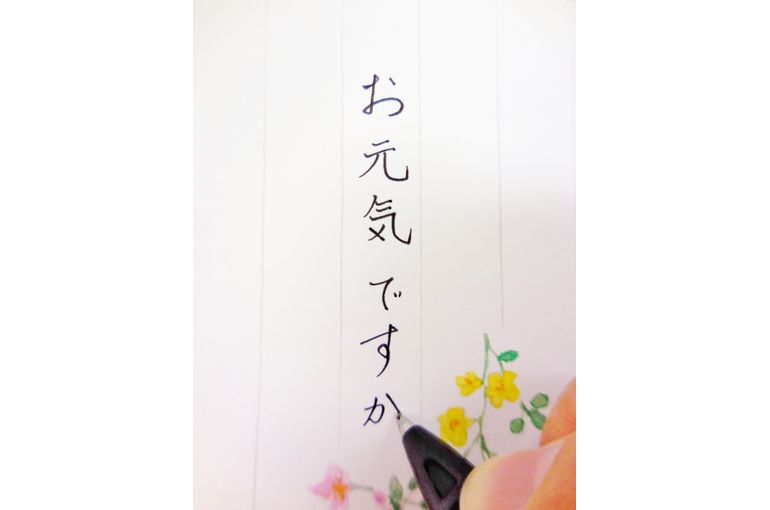 お元気ですか